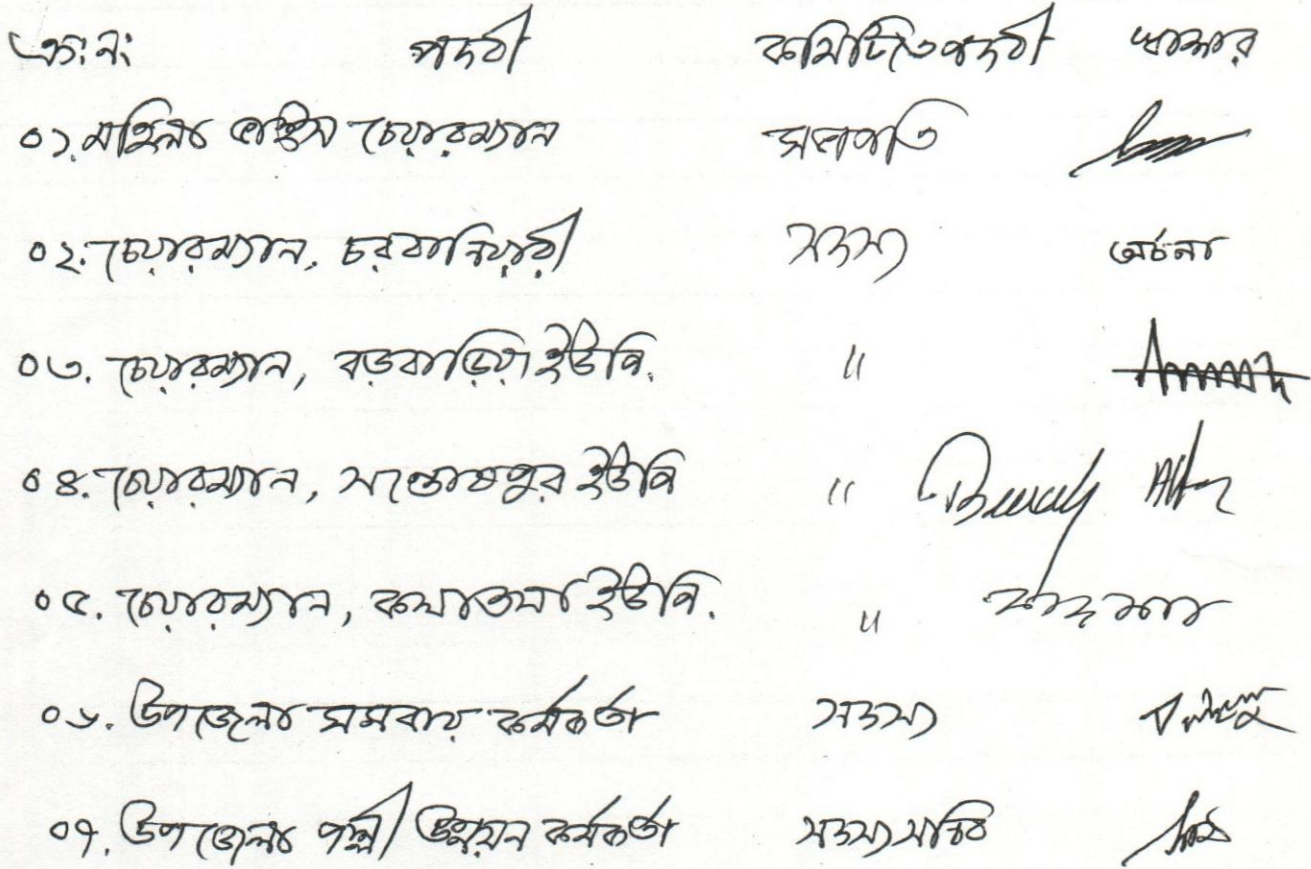 ক্র: নং পদবী কমিটিতে পদবী স্বাক্ষর
০১. মহিলা ভাইস চেয়ারম্যান সভাপতি
০২. চেয়ারম্যান, চরবানিয়ারী সদস্য অর্চনা
০৩. চেয়ারম্যান, বড়বাড়িয়া ইউপি. "
০৪. চেয়ারম্যান, সন্তোষপুর ইউপি "
০৫. চেয়ারম্যান, কলাতলা ইউপি. "
০৬. উপজেলা সমবায় কর্মকর্তা সদস্য
০৭. উপজেলা পল্লী উন্নয়ন কর্মকর্তা সদস্য সচিব